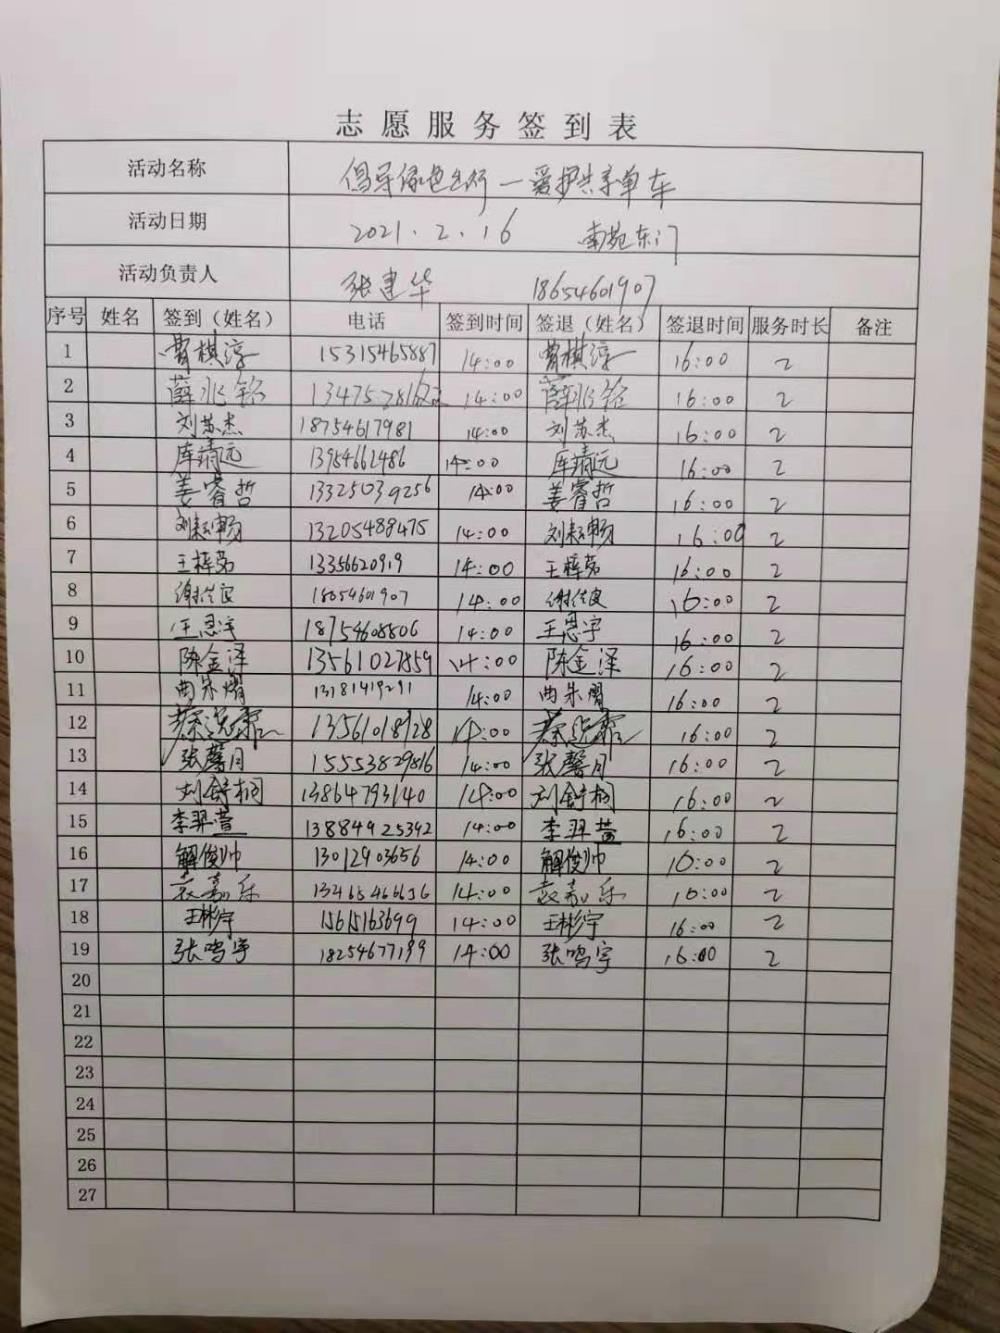 志愿服务签到表
活动名称 倡导绿色出行—爱护共享单车
活动日期 2021.2.16 南苑东门
活动负责人 张建华 18654601907
序号 姓名 签到（姓名） 电话 签到时间 签退（姓名） 签退时间 服务时长 备注
1 曹棋淳 15315465887 14:00 曹棋淳 16:00 2
2 14:00 16:00 2
3 刘苏杰 18754617981 14:00 刘苏杰 16:00 2
4 库靖远 13954662486 14:00 库靖远 16:00 2
5 姜睿哲 13325039256 14:00 姜睿哲 16:00 2
6 13205488475 14:00 16:00 2
7 13356620919 14:00 16:00 2
8 14:00 16:00 2
9 王思宇 18754608806 14:00 王思宇 16:00 2
10 陈金泽 13561027859 14:00 陈金泽 16:00 2
11 13181419291 14:00 16:00 2
12 13561018928 14:00 16:00 2
13 张馨月 15553829816 14:00 张馨月 16:00 2
14 刘舒桐 13864793140 14:00 刘舒桐 16:00 2
15 李羿萱 13884925342 14:00 李羿萱 16:00 2
16 解俊帅 13012903656 14:00 解俊帅 16:00 2
17 袁嘉乐 14:00 袁嘉乐 16:00 2
18 王彬宇 15615163699 14:00 王彬宇 16:00 2
19 张鸣宇 18254677199 14:00 张鸣宇 16:00 2
20
21
22
23
24
25
26
27